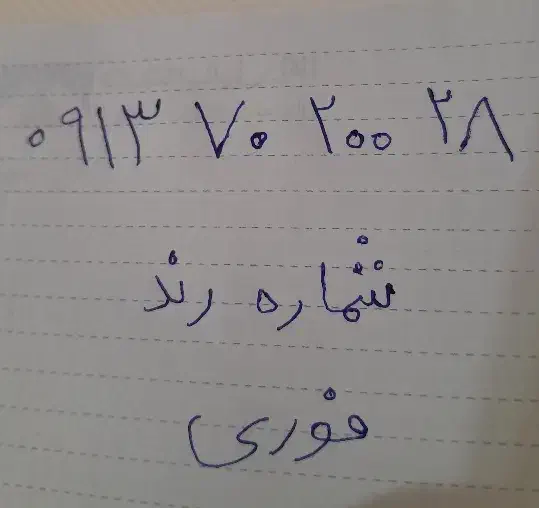 ۰۹۱۳ ۷۰ ۲۰۰ ۲۸
شماره رند
فوری